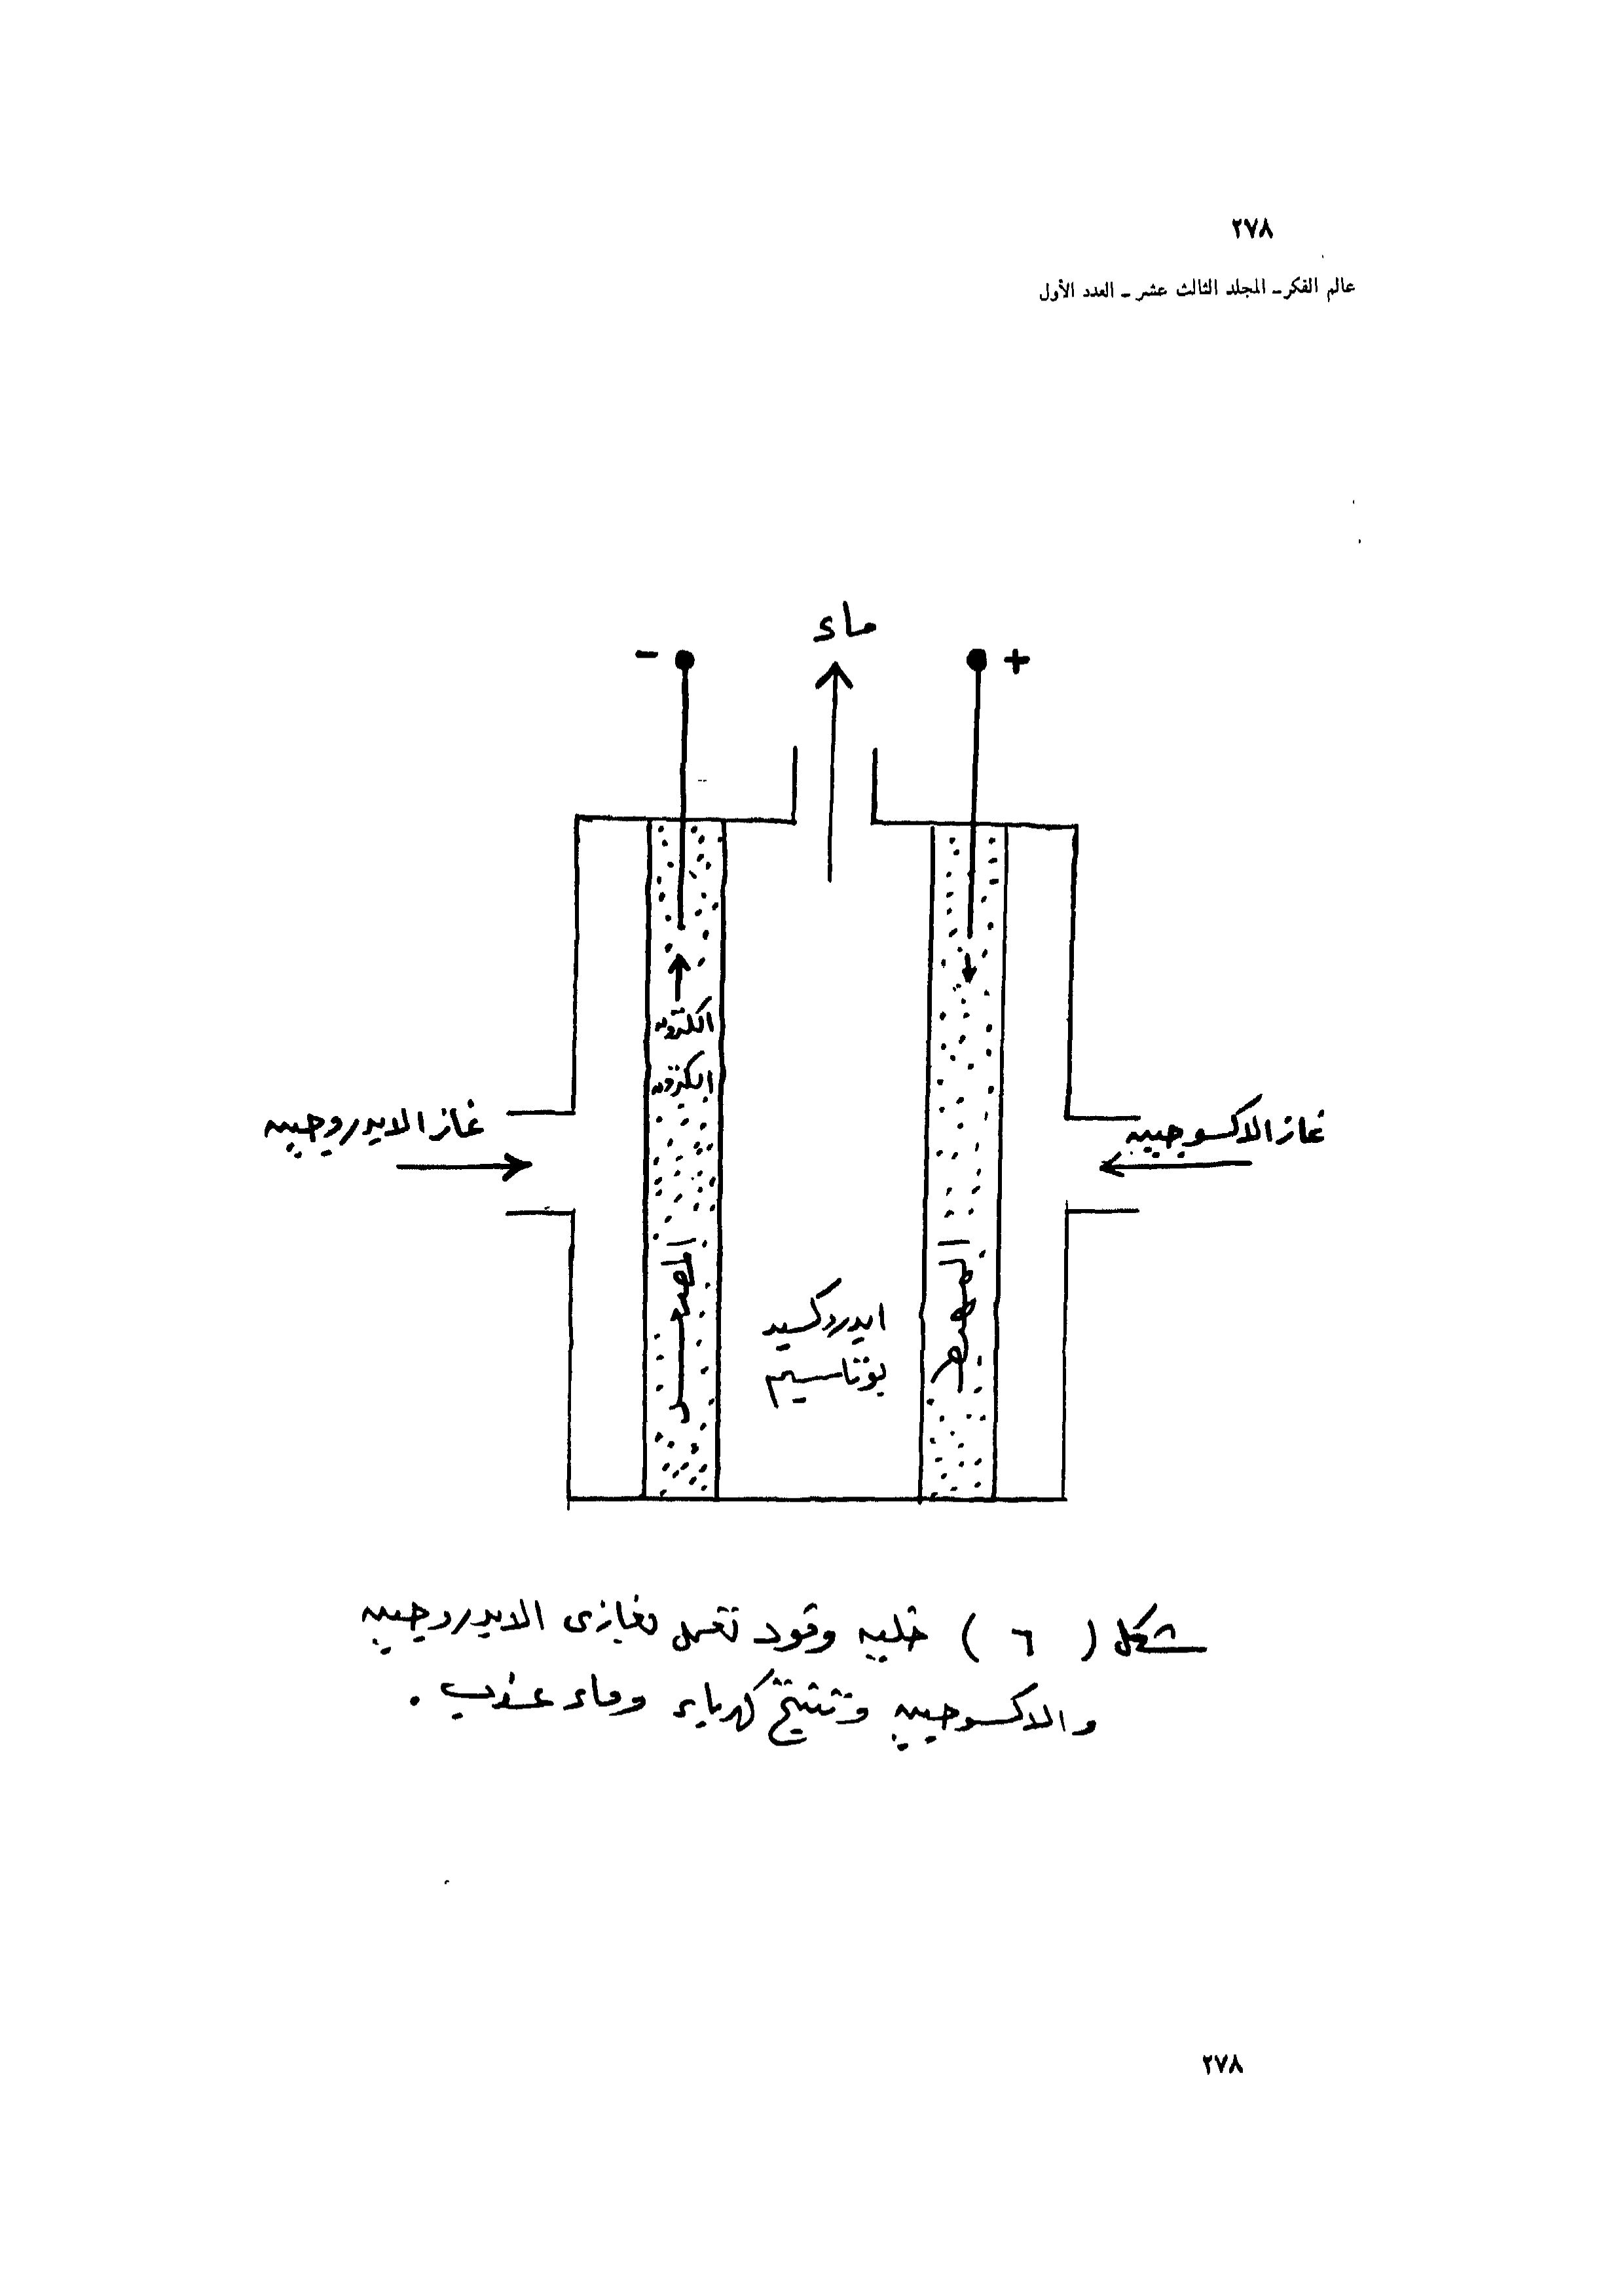 ٢٧٨
عالم الفكر ـ المجلد الثالث عشر ـ العدد الأول
ماء
- +
الكترون
الكترون
غاز الايدروجين
غاز الاكسوجين
المصعد
المهبط
ايدروكسيد
بوتاسيم
شكل ( ٦ ) خلية وقود تعمل بغازى الايدروجين
والاكسوجين وتنتج كهرباء وماء عذب .
٢٧٨